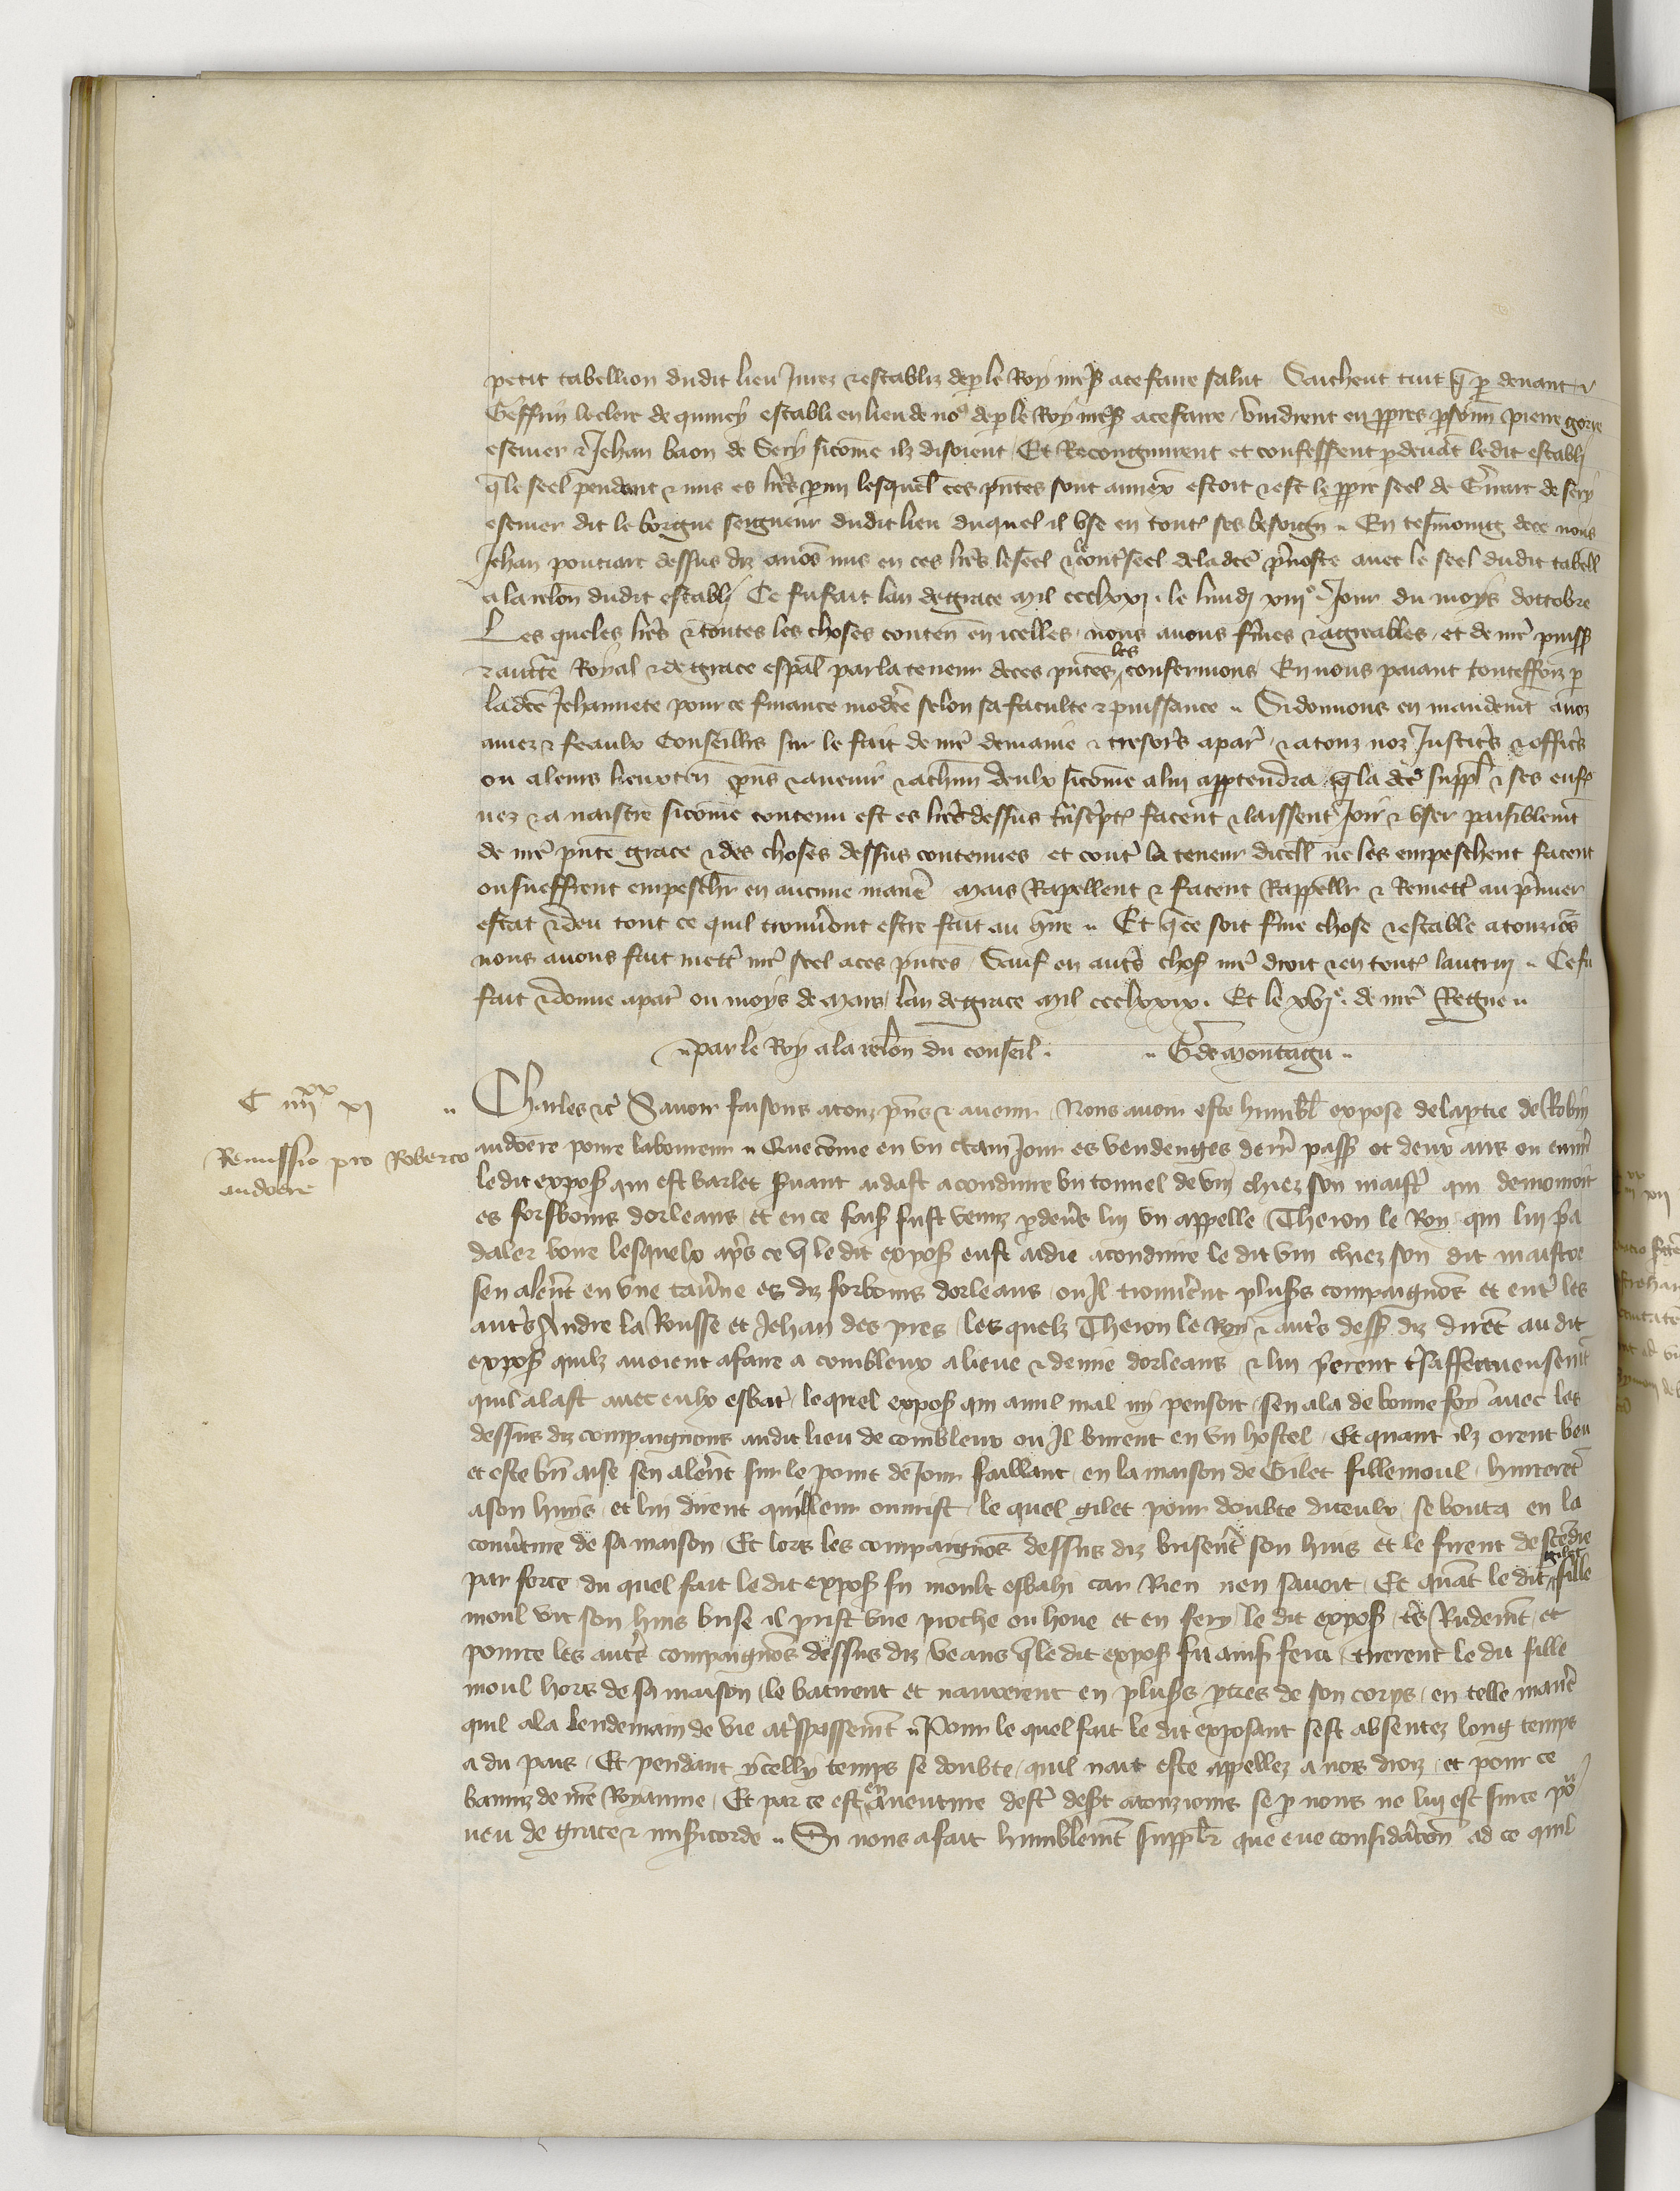 petit tabellion dudit lieu Jurez & establiz de p le Roy nrẽ s. a ce faire salut Sachent tuit q̃ p devant
Geffrin leclerc de quincy establi en lieu de noˢ de p le Roy nrẽ s. a ce faire vindrent en ppres psonn̄ pierre gorie
escuier & Jehan baon de Sery sicom̄e ilz disoient Et Recongnurent et confessent p devãt ledit establj
q̃ le seel pendant & mis es lrẽs parmi lesquell ces pñtes sont annex̃ estoit & est le ppre seel de Erart de sery
escuier dit le borgne seigneur dudit lieu duquel il use en tout ses besoign̄ En tesmoing de ce nous
Jehan pontiart dessus diz avõs mis en ces lrẽs le seel & le contseel de la dcẽ pvoste avec le seel dudit tabell
a la relõn dudit establj Ce fu fait lan de grace mil ccclxxj. le lundj xiijᵉ. Jour du moys dottobre
Les queles lrẽs & toutes les choses conten̄ en icelles nous avons fmes & agreables et de nrẽ puiss
& auctte Royal & de grace espãl par la teneur de ces pñtes les confermons En nous paiant touteffoiz p
ladcẽ Jehannete pour ce finance modeẽ selon sa faculte & puissance Si donnons en mandemt̃ a noz
amez & feaulx Conseillrs sur le fait de nrẽ demaine & tresors a par̃ & a touz noz Justicrs & officrs
ou a leurs lieuxten̄ pñs & avenir & a chũn deulx sicom̄e a lui apptendra q̃ la dcẽ suppl & ses enf
nez & a naistre sicom̄e contenu est es lrẽs dessus tñscrpt facent & laissent Joir & user paisiblemt̃
de nrẽ pñte grace & des choses dessus contenues et cont̃ la teneur dicell ne les empeschent facent
ou sueffrent empeschr en aucune manẽ mais Rapellent & facent Rappellr & Remett̃ au pmier
estat & deu tout ce quil trouv̉ont estre fait au ɋ̃re Et q̃ ce soit fme chose & estable a touziõs
nous avons fait mett̃ nrẽ seel a ces pñtes Sauf en autrs chos nrẽ droit & en tout lautruj Ce fu
fait & donne a par̃ ou moys de mars lan de grace mil ccclxxix. Et le xvjᵉ. de nrẽ Regne
par le Roy a la relõn du conseil. G de montagu
C iiijˣˣ xj
Remissio pro Roberto
audoere
Charles &c̃ Savoir faisons a touz pñs & avenir Nous avoir este humbl expose de la ptie de Robin
audoere povre laboureur Que com̄e en un ctain Jour es vendenges derr̃ pass ot deux ans ou envir̃
ledit expos qui est varlet suant aidast a conduire un tonnel de vin chiez son maist̃ qui demouroit
es forsbours dorleans et en ce fais fust venuz p devs lui un appelle Thevon le Roy qui lui pia
daler boire lesquelx aps ce q̃ ledit expos eust aidie a conduire le dit vin chiez son dit maistre
sen alerẽt en une tav̉ne es diz forbours dorleans ou Il trouv̉ent plus̉s compaignõs et ent̃ les
autrs Andre la Rousse et Jehan des pres les quelz Thevon le Roy & autrs dess diz dirẽt au dit
expos quilz avoient a faire a combleux a lieue & demie dorleans & lui pierent tsaffectueusemt̃
quil alast avec eulx esbat̃ lequel expos qui a nul mal ny pensoit sen ala de bonne foy avec les
dessus diz compaignons audit lieu de combleux ou Il burent en un hostel Et quant ilz orent beu
et este bñ aise sen alerẽt sur le point de Jour faillant en la maison de Gilet fillemoul hurterẽt
a son huis et lui dirent quil leur ouvrist le quel gilet pour doubte diceulx se bouta en la
couvtture de sa maison Et lors les compaignõs dessus diz briserẽt son huis et le firent descendre
par force du quel fait ledit expos fu moult esbahi car Rien nen savoit Et quãt le dit gilet fille
moul vit son huis brise il prist une pioche ou houe et en fery le dit expos tes Rudemt̃ et
pour ce les autrs compaignõs dessus diz veans q̃ le dit expos fu ainsi feru tirerent le dit fille
moul hors de sa maison le batirent et navrerent en plus̉s pties de son corps en telle manẽ
quil ala lendemain de vie a tspassemt̃ Pour le quel fait le dit exposant sest absentez long temps
a du pais Et pendant ycelly temps se doubte quil nait este appellez a nos droiz et pour ce
banniz de nrẽ Royaume Et par ce est en aventure dest̃ des̉t a touziours se p nous ne lui est sur ce po
veu de grace & misicorde Si nous a fait humblemt̃ supplr que eue considacõn ad ce quil